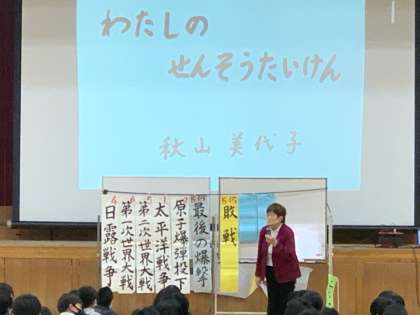 わたしの
せんそうたいけん
秋山 美代子
日露戦争
第一次世界大戦
第二次世界大戦
太平洋戦争
原子爆弾投下
最後の爆撃
敗戦